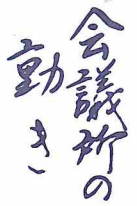 会議所の
動き